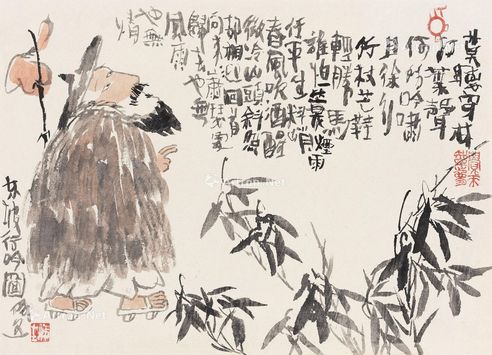 莫聽穿林
打葉聲
何妨吟嘯
且徐行
竹杖芒鞋
輕勝馬
誰怕一蓑煙雨
任平生料峭
春風吹酒醒
微冷山頭斜照
却相迎回首
向來蕭瑟處
歸去也無
風雨
也無
晴
東坡行吟圖